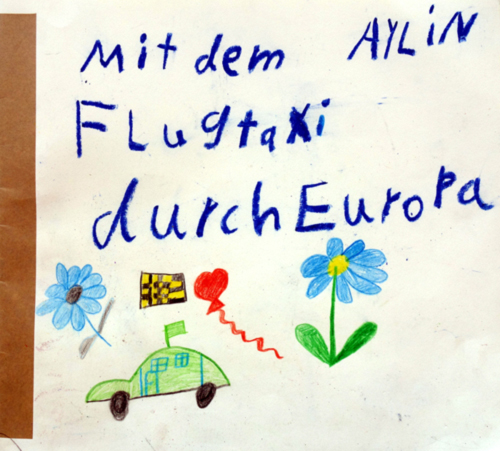 Mit dem AYLiN
Flugtaxi
durch Europa